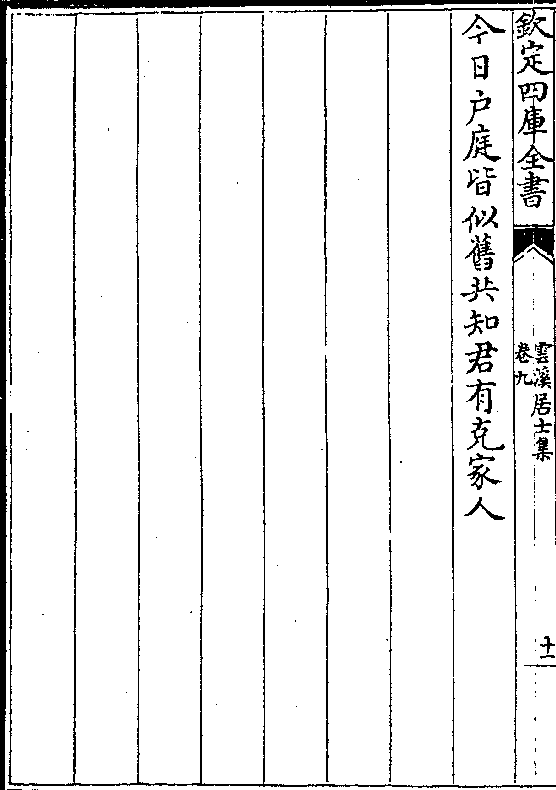 欽定四庫全書
雲溪居士集
卷九
十一
今日户庭皆似舊共知君有克家人